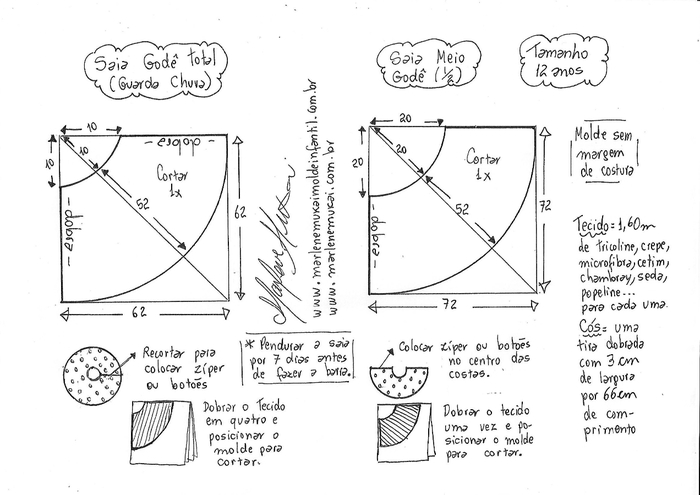 Saia Godê Total
(Guarda Chuva)
10
10
10
- dobra -
Cortar
1x
52
- dobra -
62
62
Recortar para
colocar zíper
ou botões
Dobrar o Tecido
em quatro e
posicionar o
molde para
cortar.
www.marlenemukaimoldeinfantil.com.br
www.marlenemukai.com.br
* Pendurar a saia
por 7 dias antes
de fazer a barra.
Saia Meio
Godê (1/2)
20
20
20
Cortar
1x
52
- dobra -
72
72
Colocar zíper ou botões
no centro das
costas.
Dobrar o tecido
uma vez e po-
sicionar o molde
para cortar.
Tamanho
12 anos
Molde sem
margem
de costura
Tecido = 1,60m
de tricoline, crepe,
microfibra, cetim,
chambray, seda,
popeline...
para cada uma.
Cós = uma
tira dobrada
com 3 cm
de largura
por 66cm
de com-
primento